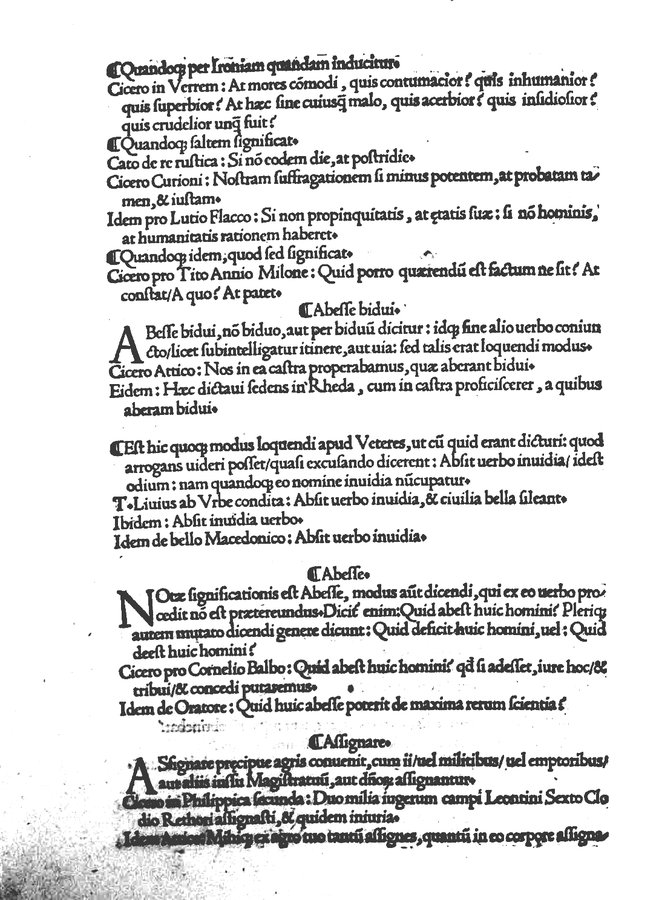 ¶Quandoq; per Ironiam quandam inducitur.
Cicero in Verrem : At mores cōmodi , quis contumacior? quis inhumanior?
quis superbior? At hæc sine cuiusq̄ malo, quis acerbior? quis insidiosior?
quis crudelior unq̄ fuit?
¶Quandoq; saltem significat.
Cato de re rustica : Si nō eodem die, at postridie.
Cicero Curioni : Nostram suffragationem si minus potentem, at probatam ta-
men, & iustam.
Idem pro Lutio Flacco : Si non propinquitatis , at ętatis suæ : si nō hominis,
at humanitatis rationem haberet.
¶Quandoq; idem, quod sed significat.
Cicero pro Tito Annio Milone : Quid porro quærendū est factum ne sit? At
constat/A quo? At patet.
¶Abesse bidui.
ABesse bidui, nō biduo, aut per biduū dicitur : idq; sine alio uerbo coniun
cto/licet subintelligatur itinere, aut uia: sed talis erat loquendi modus.
Cicero Attico : Nos in ea castra properabamus, quæ aberant bidui.
Eidem : Hæc dictaui sedens in Rheda , cum in castra proficiscerer , a quibus
aberam bidui.
¶Est hic quoq; modus loquendi apud Veteres, ut cū quid erant dicturi: quod
arrogans uideri posset/quasi excusando dicerent : Absit uerbo inuidia/ idest
odium : nam quandoq; eo nomine inuidia nūcupatur.
T. Liuius ab Vrbe condita : Absit uerbo inuidia, & ciuilia bella sileant.
Ibidem : Absit inuidia uerbo.
Idem de bello Macedonico : Absit uerbo inuidia.
¶Abesse.
NOtæ significationis est Abesse, modus aūt dicendi, qui ex eo uerbo pro-
cedit nō est prætereundus. Dicit̄ enim: Quid abest huic homini? Pleriq;
autem mutato dicendi genere dicunt : Quid deficit huic homini, uel : Quid
deest huic homini?
Cicero pro Cornelio Balbo : Quid abest huic homini? qd̄ si adesset, iure hoc/&
tribui/& concedi putaremus.
Idem de Oratore : Quid huic abesse poterit de maxima rerum scientia?
¶Assignare.
ASsignare pręcipue agris conuenit, cum ii/uel militibus/ uel emptoribus/
aut aliis iussu Magistratuū, aut dn̄oq; assignantur.
Cicero in Philippica secunda : Duo milia iugerum campi Leontini Sexto Clo
dio Rethori assignasti, & quidem iniuria.
Idem Mihiq; ex agro tuo tantū assignes, quantū in eo corpore assigna-